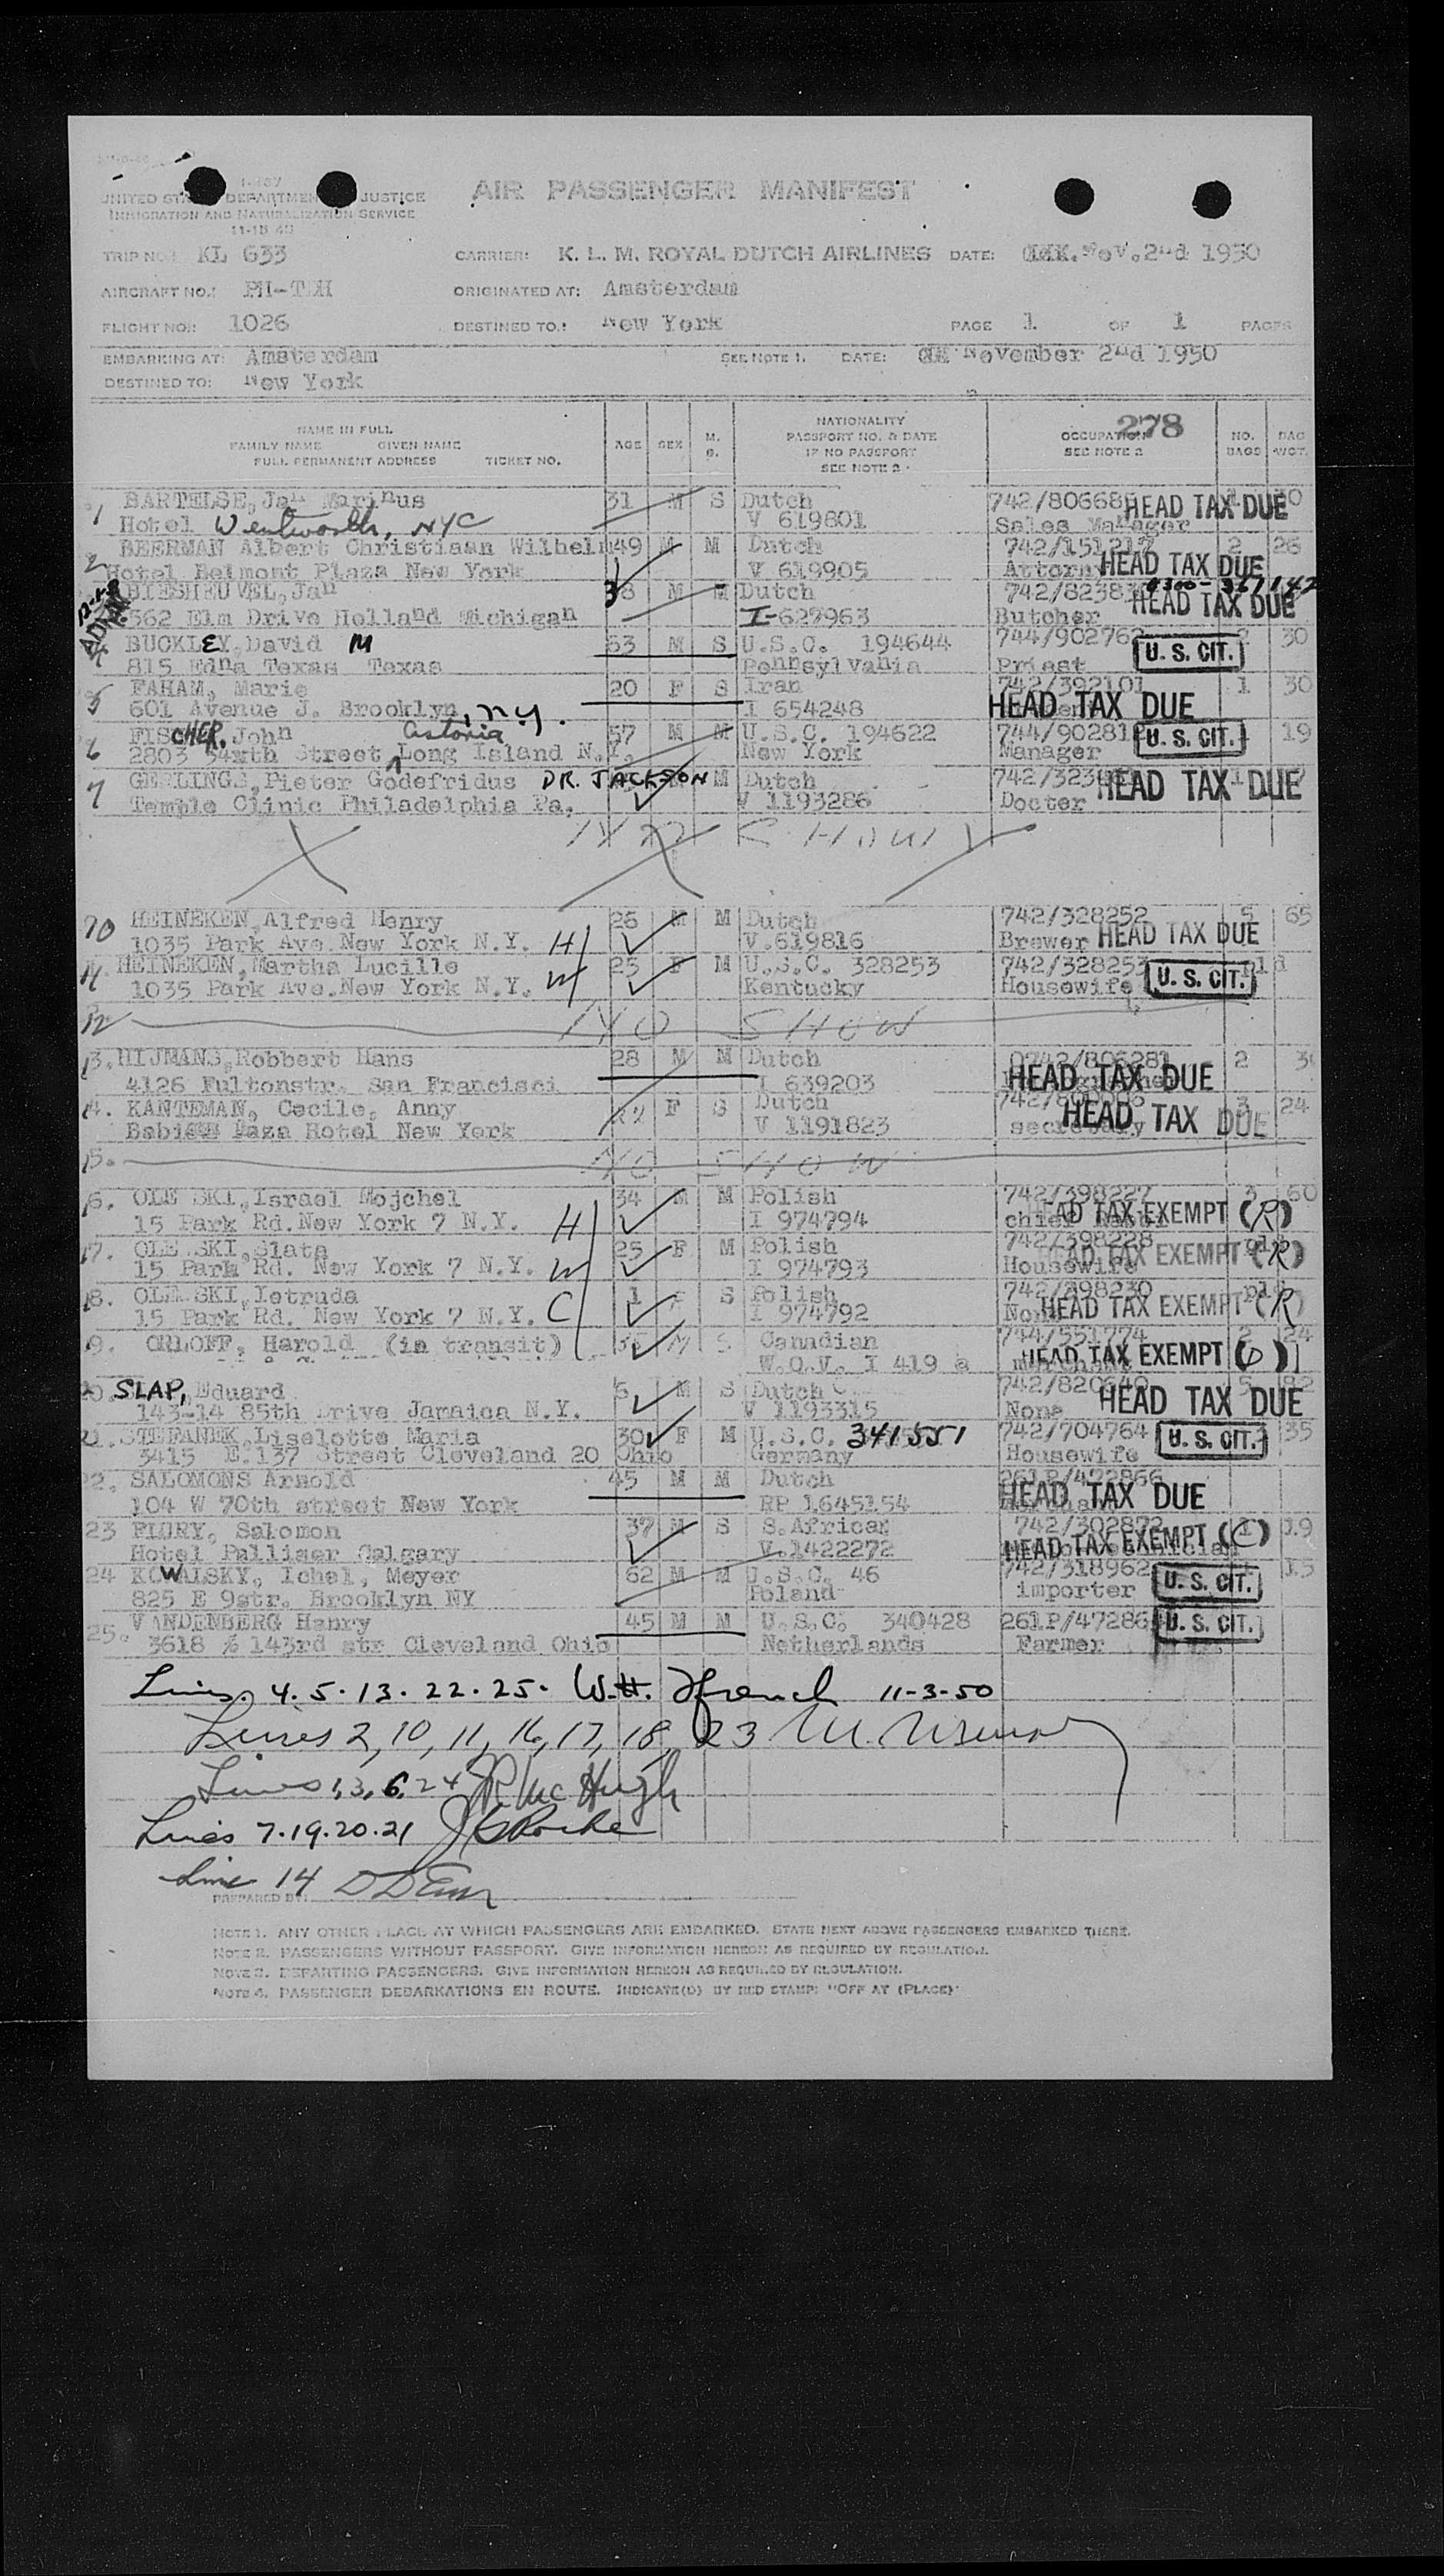 I-457
UNITED STATES DEPARTMENT OF JUSTICE
IMMIGRATION AND NATURALIZATION SERVICE
AIR PASSENGER MANIFEST
TRIP NO.: KL 633 CARRIER: K. L. M. ROYAL DUTCH AIRLINES DATE: Nov. 2nd 1950
AIRCRAFT NO.: ORIGINATED AT: Amsterdam
FLIGHT NO.: 1026 DESTINED TO.: New York PAGE 1 OF 1 PAGES
EMBARKING AT: Amsterdam SEE NOTE 1. DATE: November 2nd 1950
DESTINED TO: New York
NAME IN FULL
FAMILY NAME GIVEN NAME
FULL PERMANENT ADDRESS TICKET NO.
AGE SEX M. S.
NATIONALITY
PASSPORT NO. & DATE
IF NO PASSPORT
SEE NOTE 2
278
OCCUPATION
SEE NOTE 2
NO. BAGS BAG WGT.
1 BARTELSE, Jan Marinus 31 M S Dutch HEAD TAX DUE
Hotel Wentworth, NYC V 619801 Sales Manager
2 BEERMAN Albert Christiaan Wilhelm 49 M M Dutch 742/151217 2 26
Hotel Belmont Plaza New York V 619905 Attorny HEAD TAX DUE
BIESHEUVEL, Jan 38 M M Dutch HEAD TAX DUE
562 Elm Drive Holland Michigan I-627963 Butcher
BUCKLEY, David M 53 M S U.S.C. 194644 744/902762 2 30
815 Edna Texas Texas Pennsylvania Priest U. S. CIT.
5 FAHAM, Marie 20 F S Iran 742/392101 1 30
601 Avenue J. Brooklyn, N.Y. I 654248 HEAD TAX DUE
6 FISCHER, John Astoria 57 M M U.S.C. 194622 U. S. CIT. 19
2803 34xth Street Long Island N.Y. New York Manager
7 GEELINGS, Pieter Godefridus DR. JACKSON M Dutch HEAD TAX DUE
Temple Clinic Philadelphia Pa. V 1193286 Docter
10 HEINEKEN, Alfred Henry 26 M M Dutch 742/328252 5 65
1035 Park Ave. New York N.Y. H V.619816 Brewer HEAD TAX DUE
11. HEINEKEN, Martha Lucille 25 F M U.S.C. 328253 742/328253 pld
1035 Park Ave. New York N.Y. W Kentucky Housewife U. S. CIT.
12 NO SHOW
13. HIJMANS, Robbert Hans 28 M M Dutch 0742/806281 2
4126 Fultonstr. San Francisci I 639203 HEAD TAX DUE
14. KANTEMAN, Cecile, Anny F S Dutch 3 24
Hotel New York V 1191823 secretary HEAD TAX DUE
15. NO SHOW
16. Israel Mojchel 34 M M Polish 742/398227 3 60
15 Park Rd. New York 7 N.Y. H I 974794 HEAD TAX EXEMPT (R)
17. Slata 25 F M Polish 742/398228 pld
15 Park Rd. New York 7 N.Y. W I 974793 Housewife HEAD TAX EXEMPT (R)
18. Ietruda 1 F S Polish 742/398230 pld
15 Park Rd. New York 7 N.Y. C I 974792 HEAD TAX EXEMPT (R)
19. ORLOFF, Harold (in transit) M S Canadian 744/551774 2 24
W.O.V. I 419 a HEAD TAX EXEMPT
SLAP, Eduard M S Dutch HEAD TAX DUE
143-14 85th Drive Jamaica N.Y. V 1193315 None
21. STEFANEK, Liselotte Maria 30 F M U.S.C. 341551 742/704764 U. S. CIT. 35
3415 E. 137 Street Cleveland 20 Ohio Germany Housewife
22. SALOMONS Arnold 45 M M Dutch 261P/472866
104 W 70th street New York RP 1645154 HEAD TAX DUE
23 FLORY, Salomon 37 M S S.African 742/302872 1 19
Hotel Palliser Calgary V.1422272 HEAD TAX EXEMPT (C)
24 KOWALSKY, Ichel, Meyer 62 M M U.S.C. 46 742/318962 15
825 E 9str. Brooklyn NY Poland importer U. S. CIT.
25. VANDENBERG Henry 45 M M U.S.C. 340428 U. S. CIT.
3618 143rd str Cleveland Ohio Netherlands Farmer
Lines. 4. 5. 13. 22. 25. W.H. French 11-3-50
Lines 2, 10, 11, 16, 17, 18, 23
Lines 1, 3, 6, 24 JR McHugh
Lines 7.19.20.21
Line 14
PREPARED BY:
NOTE 1. ANY OTHER PLACE AT WHICH PASSENGERS ARE EMBARKED. STATE NEXT ABOVE PASSENGERS EMBARKED THERE.
NOTE 2. PASSENGERS WITHOUT PASSPORT. GIVE INFORMATION HEREON AS REQUIRED BY REGULATION.
NOTE 3. DEPARTING PASSENGERS. GIVE INFORMATION HEREON AS REQUIRED BY REGULATION.
NOTE 4. PASSENGER DEBARKATIONS EN ROUTE. INDICATE(D) BY RED STAMP: "OFF AT (PLACE)"